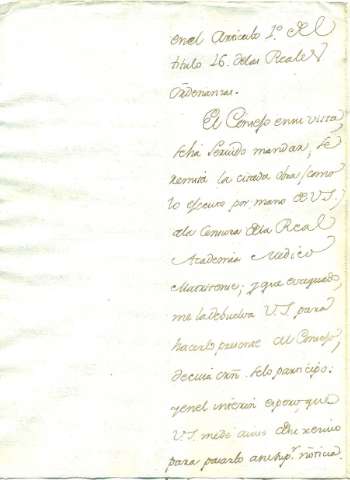 en el Articulo 1º del
titulo 16. delas Reales
Ordenanzas.
El Consejo en su vista,
seha servido mandar, se
remita la citada obra (como
lo efectuo por mano de V.S.)
ala Censura dela Real
Academia Medico
Matritense; y que evaquada,
me la debuelva V.S. para
hacerlo presente al Consejo,
de cuia orñ. selo participo:
yenel interin espero, que
V.S. me dè aviso del recivo
para pasarlo a su sup.r noticia.